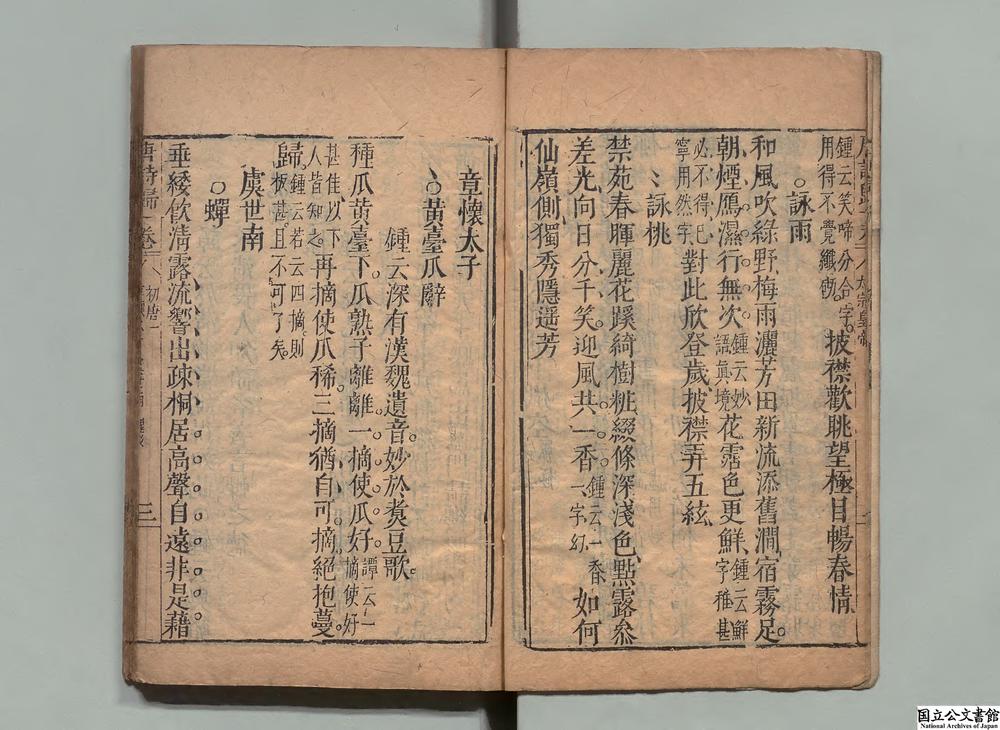 鍾云笑啼分合字
用得不覺纖
披襟歡眺望極目暢春情
詠雨
和風吹綠野梅雨灑芳田新流添舊澗宿霧足
朝煙鴈濕行無次鍾云妙語真境花霑色更鮮鍾云鮮字稚甚
必不得已寧用然字對此欣登歲披襟弄五絃
詠桃
禁苑春暉麗花蹊綺樹粧綴條深淺色點露叅
差光向日分千笑迎風共一香鍾云一香一字幻如何
仙嶺側獨秀隱遥芳
章懷太子
黃臺瓜辭
鍾云深有漢魏遺音妙於煮豆歌
種瓜黃臺下瓜熟子離離一摘使瓜好譚云一摘使好
甚佳以下人皆知之再摘使瓜稀三摘猶自可摘絕抱蔓
歸鍾云若云四摘則板甚且不可了矣
虞世南
蟬
垂緌飲清露流響出疎桐居高聲自遠非是藉
唐詩歸 卷一 初唐一
三
国立公文書館
National Archives of Japan